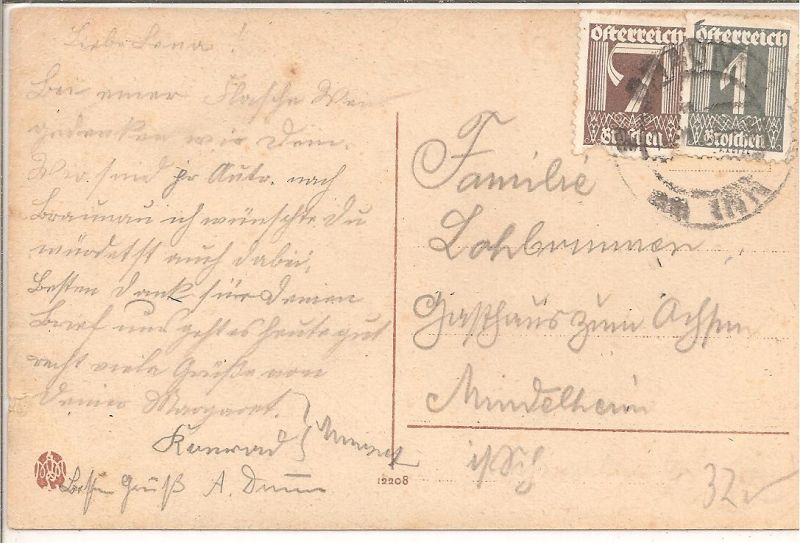 Liebe Lena!
Bei einer Flasche Wein
gedenken wir Dein.
Wir sind pr Auto. nach
Braunau ich wünschte Du
würdest auch dabei.
Besten Dank für Deinen
Brief uns geht es heute gut
recht viele Grüße von
Deiner Margaret.
Konrad
Besten Gruß A.
12208
Österreich
7
Groschen
Österreich
1
Groschen
Familie
Lohbrunner
Gasthaus zum Ochsen
Mindelheim
32